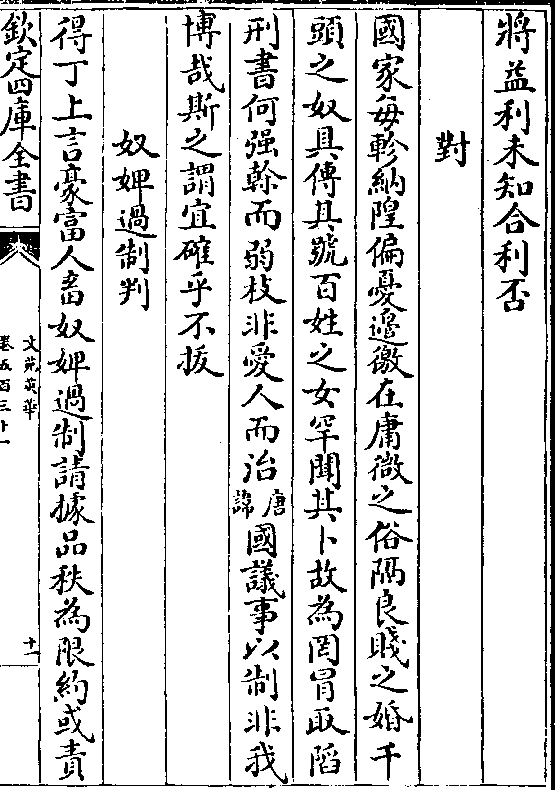 將益利未知合利否
對
國家每軫納隍偏憂邉徼在庸微之俗隔良賤之婚千
頭之奴具傳其號百姓之女罕聞其卜故為罔冒取陷
刑書何强幹而弱枝非愛人而治唐諱國議事以制非我
博哉斯之謂宜確乎不拔
奴婢過制判
得丁上言豪富人畜奴婢過制請據品秩為限約或責
欽定四庫全書
文苑英華
卷五百三十一
十一